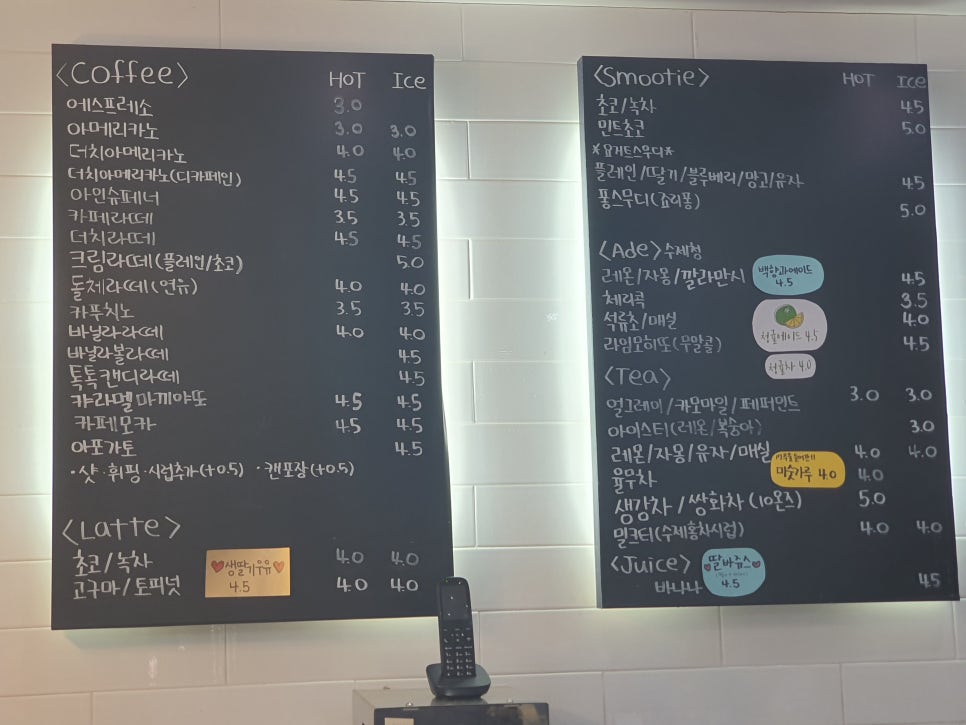 <Coffee> HOT Ice
에스프레소 3.0
아메리카노 3.0 3.0
더치아메리카노 4.0 4.0
더치아메리카노(디카페인) 4.5 4.5
아인슈페너 4.5 4.5
카페라떼 3.5 3.5
더치라떼 4.5 4.5
크림라떼(플레인/초코) 5.0
돌체라떼(연유) 4.0 4.0
카푸치노 3.5 3.5
바닐라라떼 4.0 4.0
바닐라볼라떼 4.5
톡톡캔디라떼 4.5
캬라멜마끼야또 4.5 4.5
카페모카 4.5 4.5
아포가토 4.5
·샷·휘핑·시럽추가(+0.5) ·캔포장(+0.5)
<Latte>
초코/녹차 4.0 4.0
고구마/토피넛 4.0 4.0
생딸기우유
4.5
<Smootie> HOT Ice
초코/녹차 4.5
민트초코 5.0
*요거트스무디*
플레인/딸기/블루베리/망고/유자 4.5
퐁스무디(죠리퐁) 5.0
<Ade> 수제청
레몬/자몽/깔라만시 4.5
백향과에이드
4.5
체리콕 3.5
석류초/매실 4.0
라임모히또(무알콜) 4.5
청귤에이드 4.5
청귤차 4.0
<Tea>
얼그레이/카모마일/페퍼민트 3.0 3.0
아이스티(레몬/복숭아) 3.0
레몬/자몽/유자/매실 4.0 4.0
미숫가루 4.0
율무차 4.0
생강차/쌍화차(10온즈) 5.0
밀크티(수제홍차시럽) 4.0 4.0
<Juice>
딸바쥬스
4.5
바나나 4.5